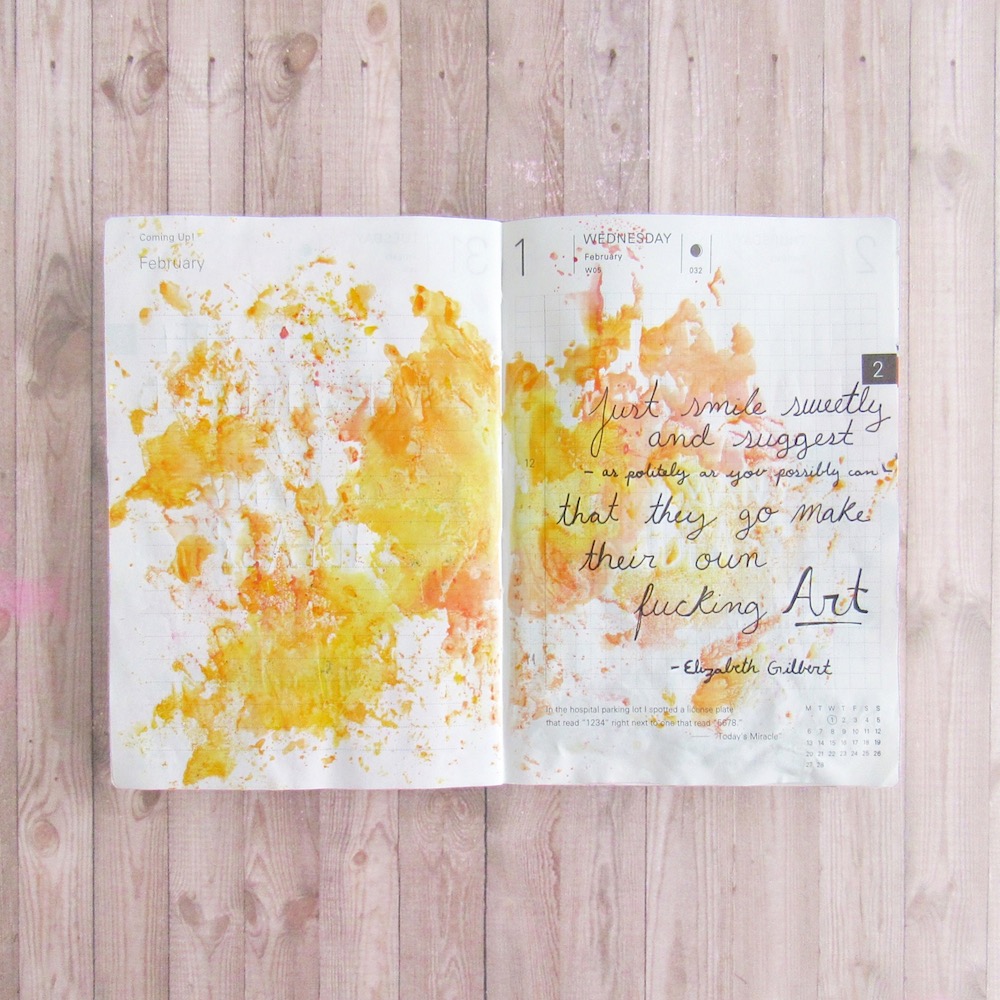 Coming Up!
February
31
1
WEDNESDAY
February
W05
032
2
2
Just smile sweetly
and suggest
- as politely as you possibly can -
12
that they go make
their own
fucking Art
- Elizabeth Gilbert
In the hospital parking lot I spotted a license plate
that read "1234" right next to one that read "5678."
—— "Today's Miracle"
M T W T F S S
1 2 3 4 5
6 7 8 9 10 11 12
13 14 15 16 17 18 19
20 21 22 23 24 25 26
27 28